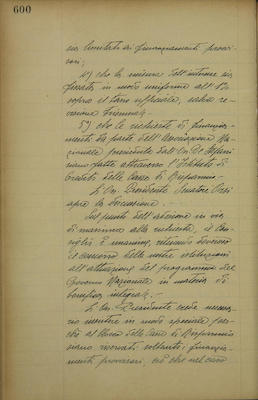 600
sui limitati di finanziamenti provvi-
sori;
4°) che la misura dell'interesse sia
fissata in modo uniforme all'
sopra il tasso ufficiale, salvo re-
visione triennale;
5°) che le richieste di finanzia-
menti da parte dell'Associazione Na-
zionale presieduta dall'On. De
siano fatte attraverso l'Istituto di
Credito delle Casse di Risparmio.
L'On. Presidente Senatore
apre la discussione.
Sul punto dell'adesione in via
di massima alla richiesta, il Con-
siglio è unanime, ritenendo doveroso
il concorso delle nostre istituzioni
all'attuazione del programma del
Governo Nazionale in materia di
bonifica integrale.
L'On. Presidente crede necessa-
rio mettere in modo speciale per-
chè al
siano riservati soltanto i finanzia-
menti provvisori, ciò che nel caso